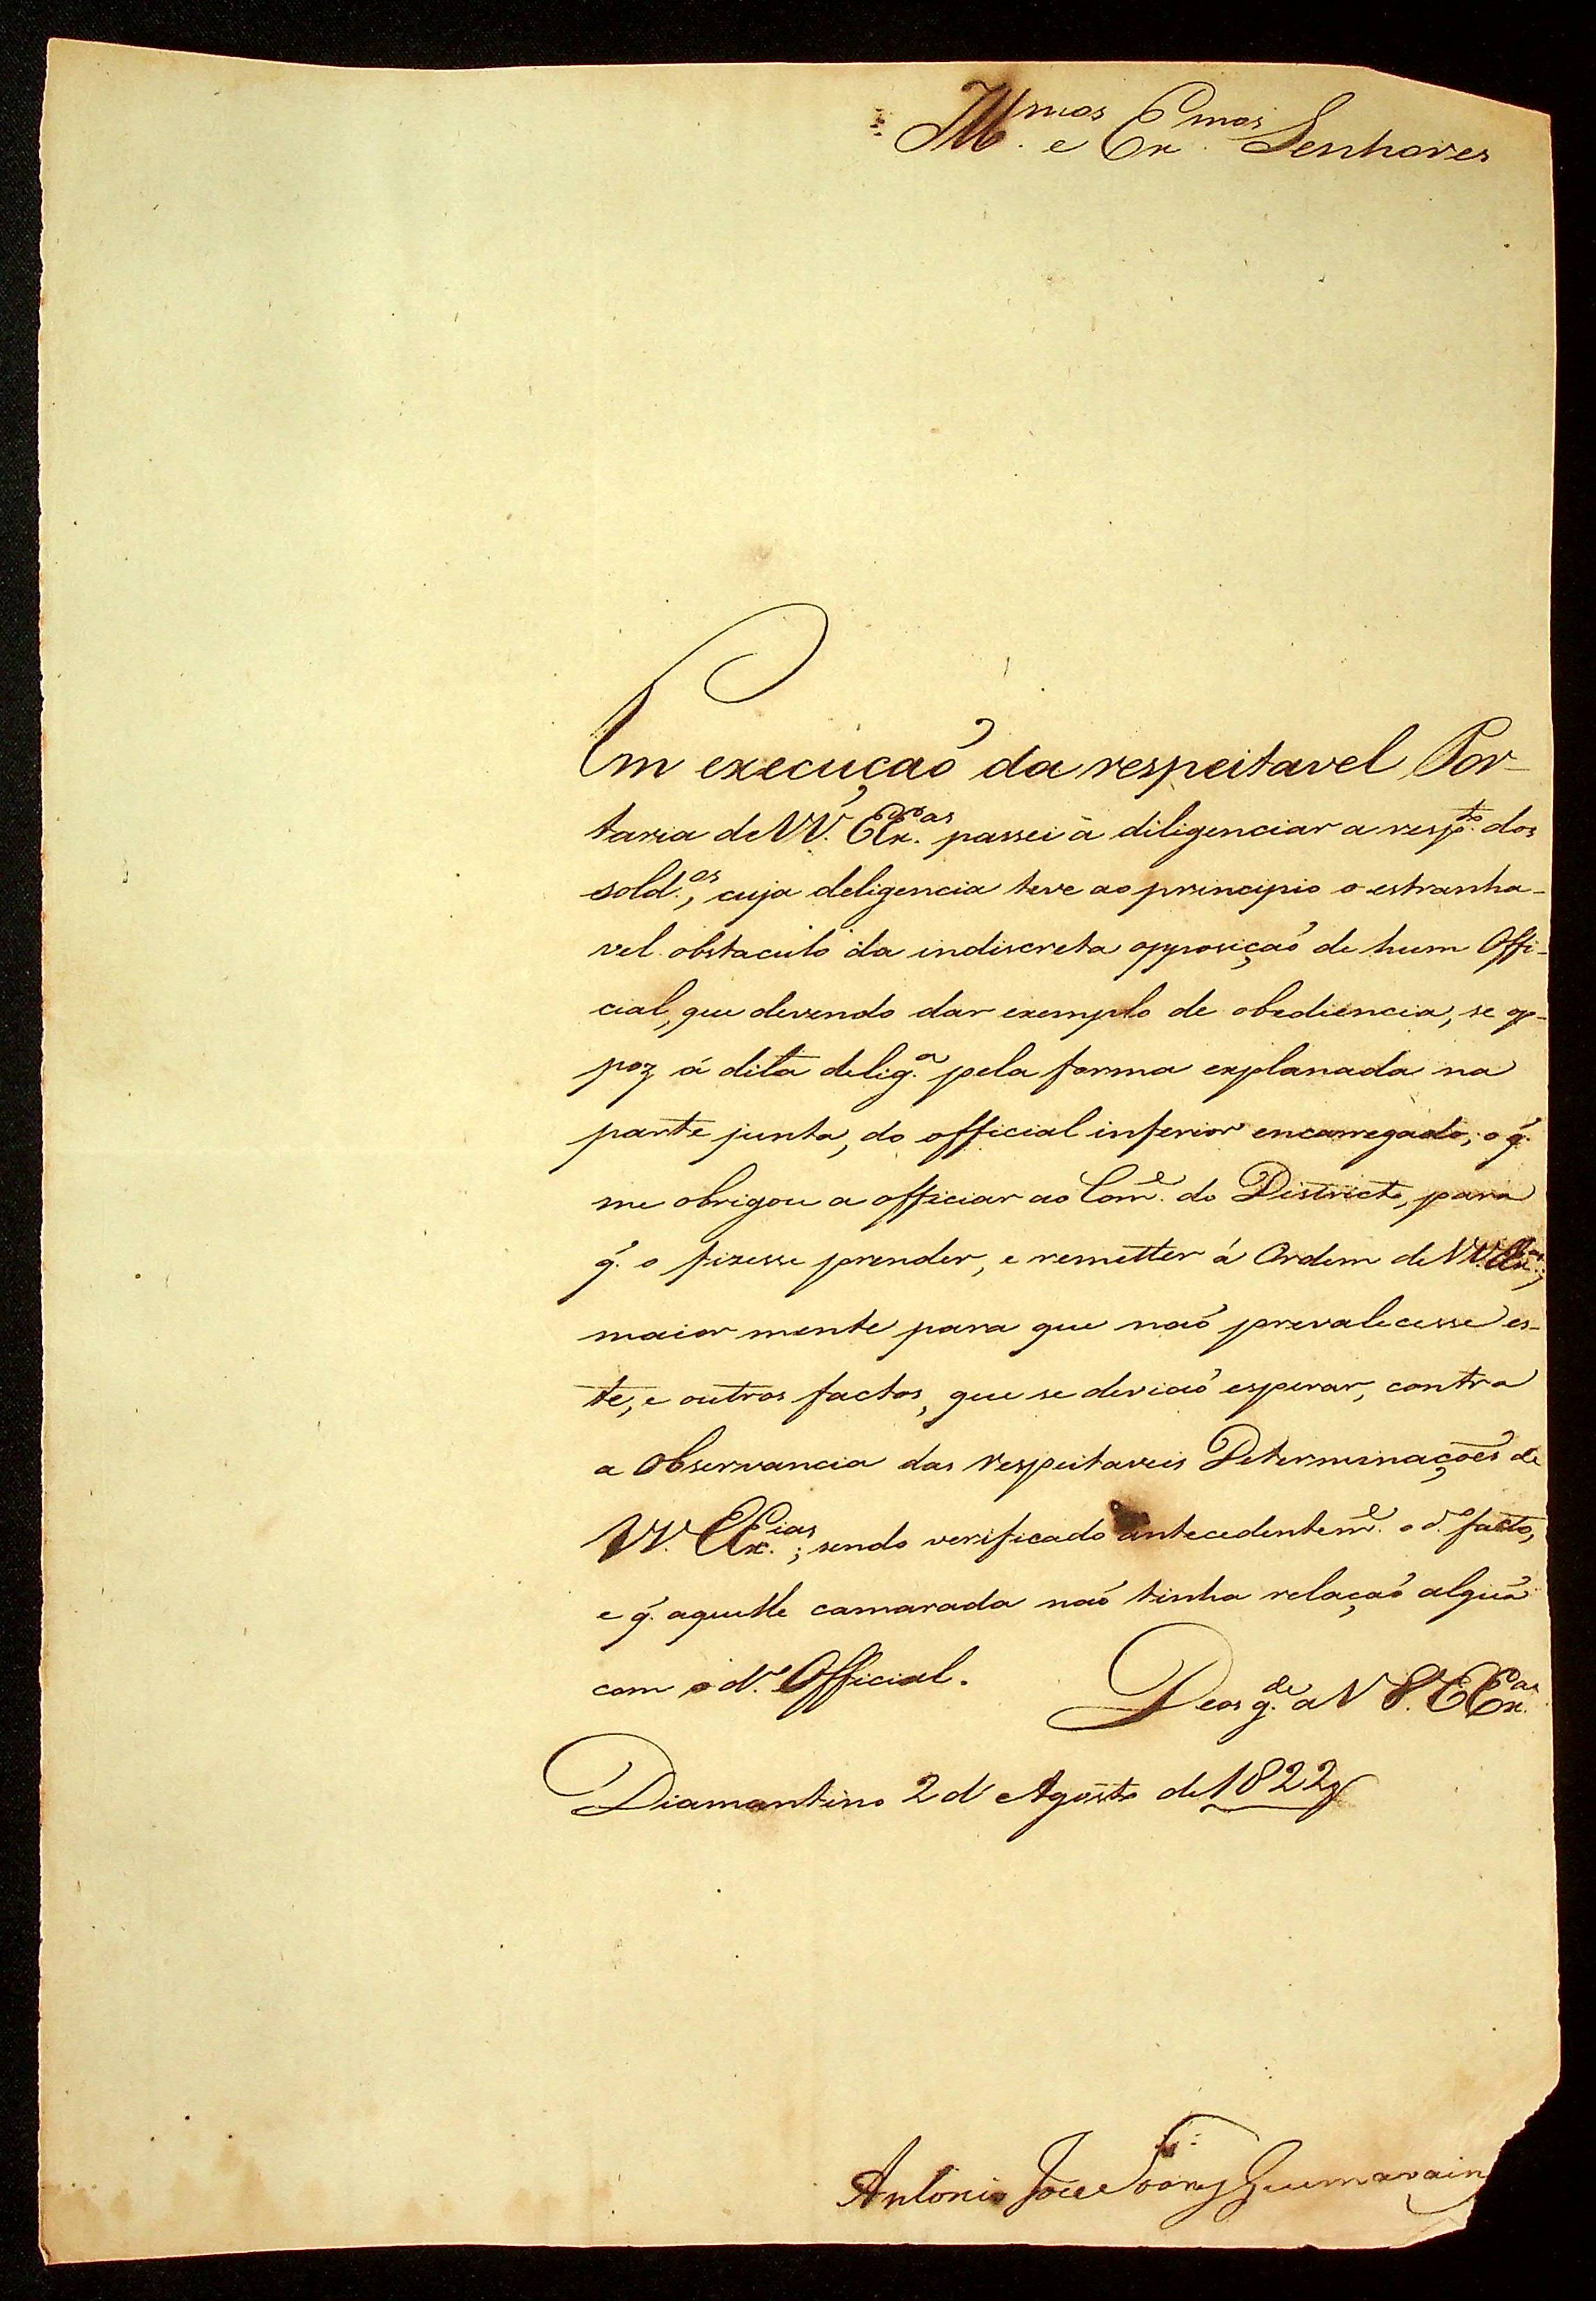 Ill.mos e Ex.mos Senhores
Em execuçaõ da respeitavel Por-
taria de VV. EEx.as passei à diligenciar a resp.to dos
sold.os, cuja deligencia teve ao principio o estranha-
vel obstaculo da indiscreta opposiçaõ de hum Offi-
cial, que devendo dar exemplo de obediencia, se op-
poz á dita delig.a pela forma explanada na
parte junta, do official inferior encarregado; o q.
me obrigou a officiar ao Com.e do Districto, para
q. o fizesse prender, e remetter á Ordem de VV. EEx.as;
maior mente para que naõ prevalecesse es-
te, e outros factos, que se deviaõ esperar, contra
a Observancia das respeitaveis Determinações de
VV. EEx.cias; sendo verificado antecedentem.e o d.o facto,
e q. aquelle camarada naõ tinha relaçaõ algũa
com o d.o Official. Deos g.de a VV. EEx.as
Diamantino 2 d' Agosto de 1822
Antonio Joze Guimarains